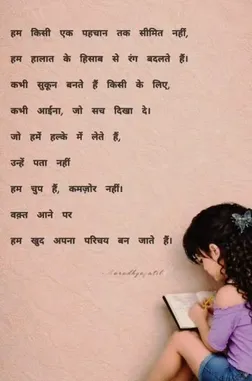 हम किसी एक पहचान तक सीमित नहीं,
हम हालात के हिसाब से रंग बदलते हैं।
कभी सुकून बनते हैं किसी के लिए,
कभी आईना, जो सच दिखा दे।
जो हमें हल्के में लेते हैं,
उन्हें पता नहीं
हम चुप हैं, कमज़ोर नहीं।
वक़्त आने पर
हम खुद अपना परिचय बन जाते हैं।